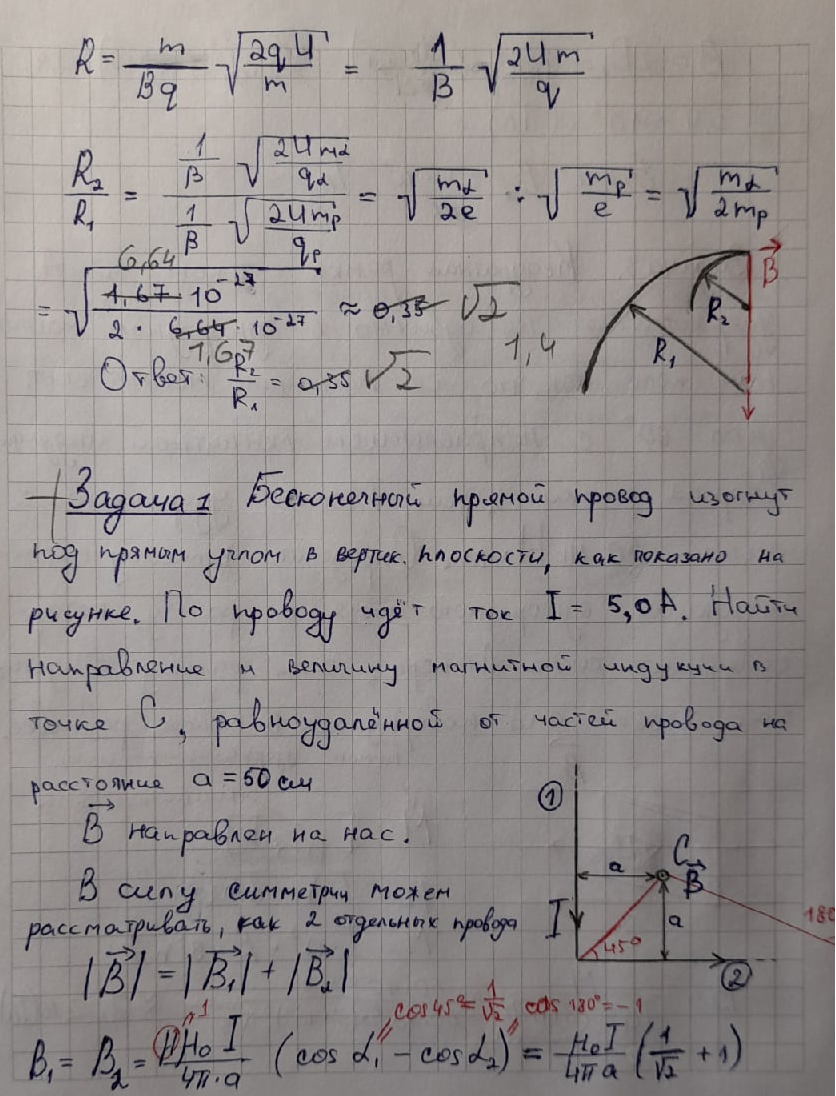 R = m/(Bq) √(2qU/m) = 1/B √(2Um/q)
R₂/R₁ = (1/B √(2Um_α/q_α))/(1/B √(2Um_p/q_p)) = √(m_α/2e) : √(m_p/e) = √(m_α/2m_p)
6,64
= √(1,67·10⁻²⁷/(2·6,64·10⁻²⁷)) ≈ 0,35 √2
1,67
1,4
Ответ: R₂/R₁ = 0,35 √2
B
R₂
R₁
Задача 1 Бесконечный прямой провод изогнут
под прямым углом в вертик. плоскости, как показано на
рисунке. По проводу идёт ток I = 5,0 А. Найти
направление и величину магнитной индукции в
точке C, равноудалённой от частей провода на
расстояние a = 50 см
B⃗ направлен на нас.
В силу симметрии можем
рассматривать, как 2 отдельных провода
|B⃗| = |B⃗₁| + |B⃗₂|
1
a
C
B⃗
I
a
45°
180
2
1
cos45° = 1/√2, cos 180° = -1
B₁ = B₂ = μμ₀I/(4π·a) (cos α₁ - cos α₂) = μ₀I/(4πa) (1/√2 + 1)